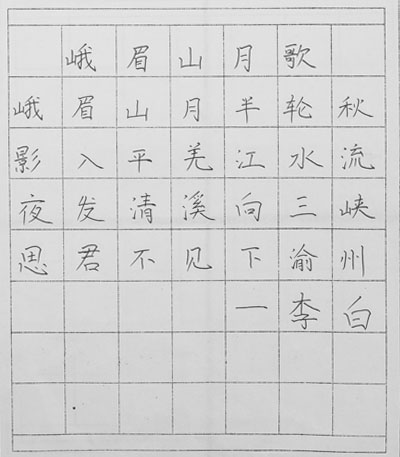 峨眉山月歌
峨眉山月半轮秋
影入平羌江水流
夜发清溪向三峡
思君不见下渝州
一李白